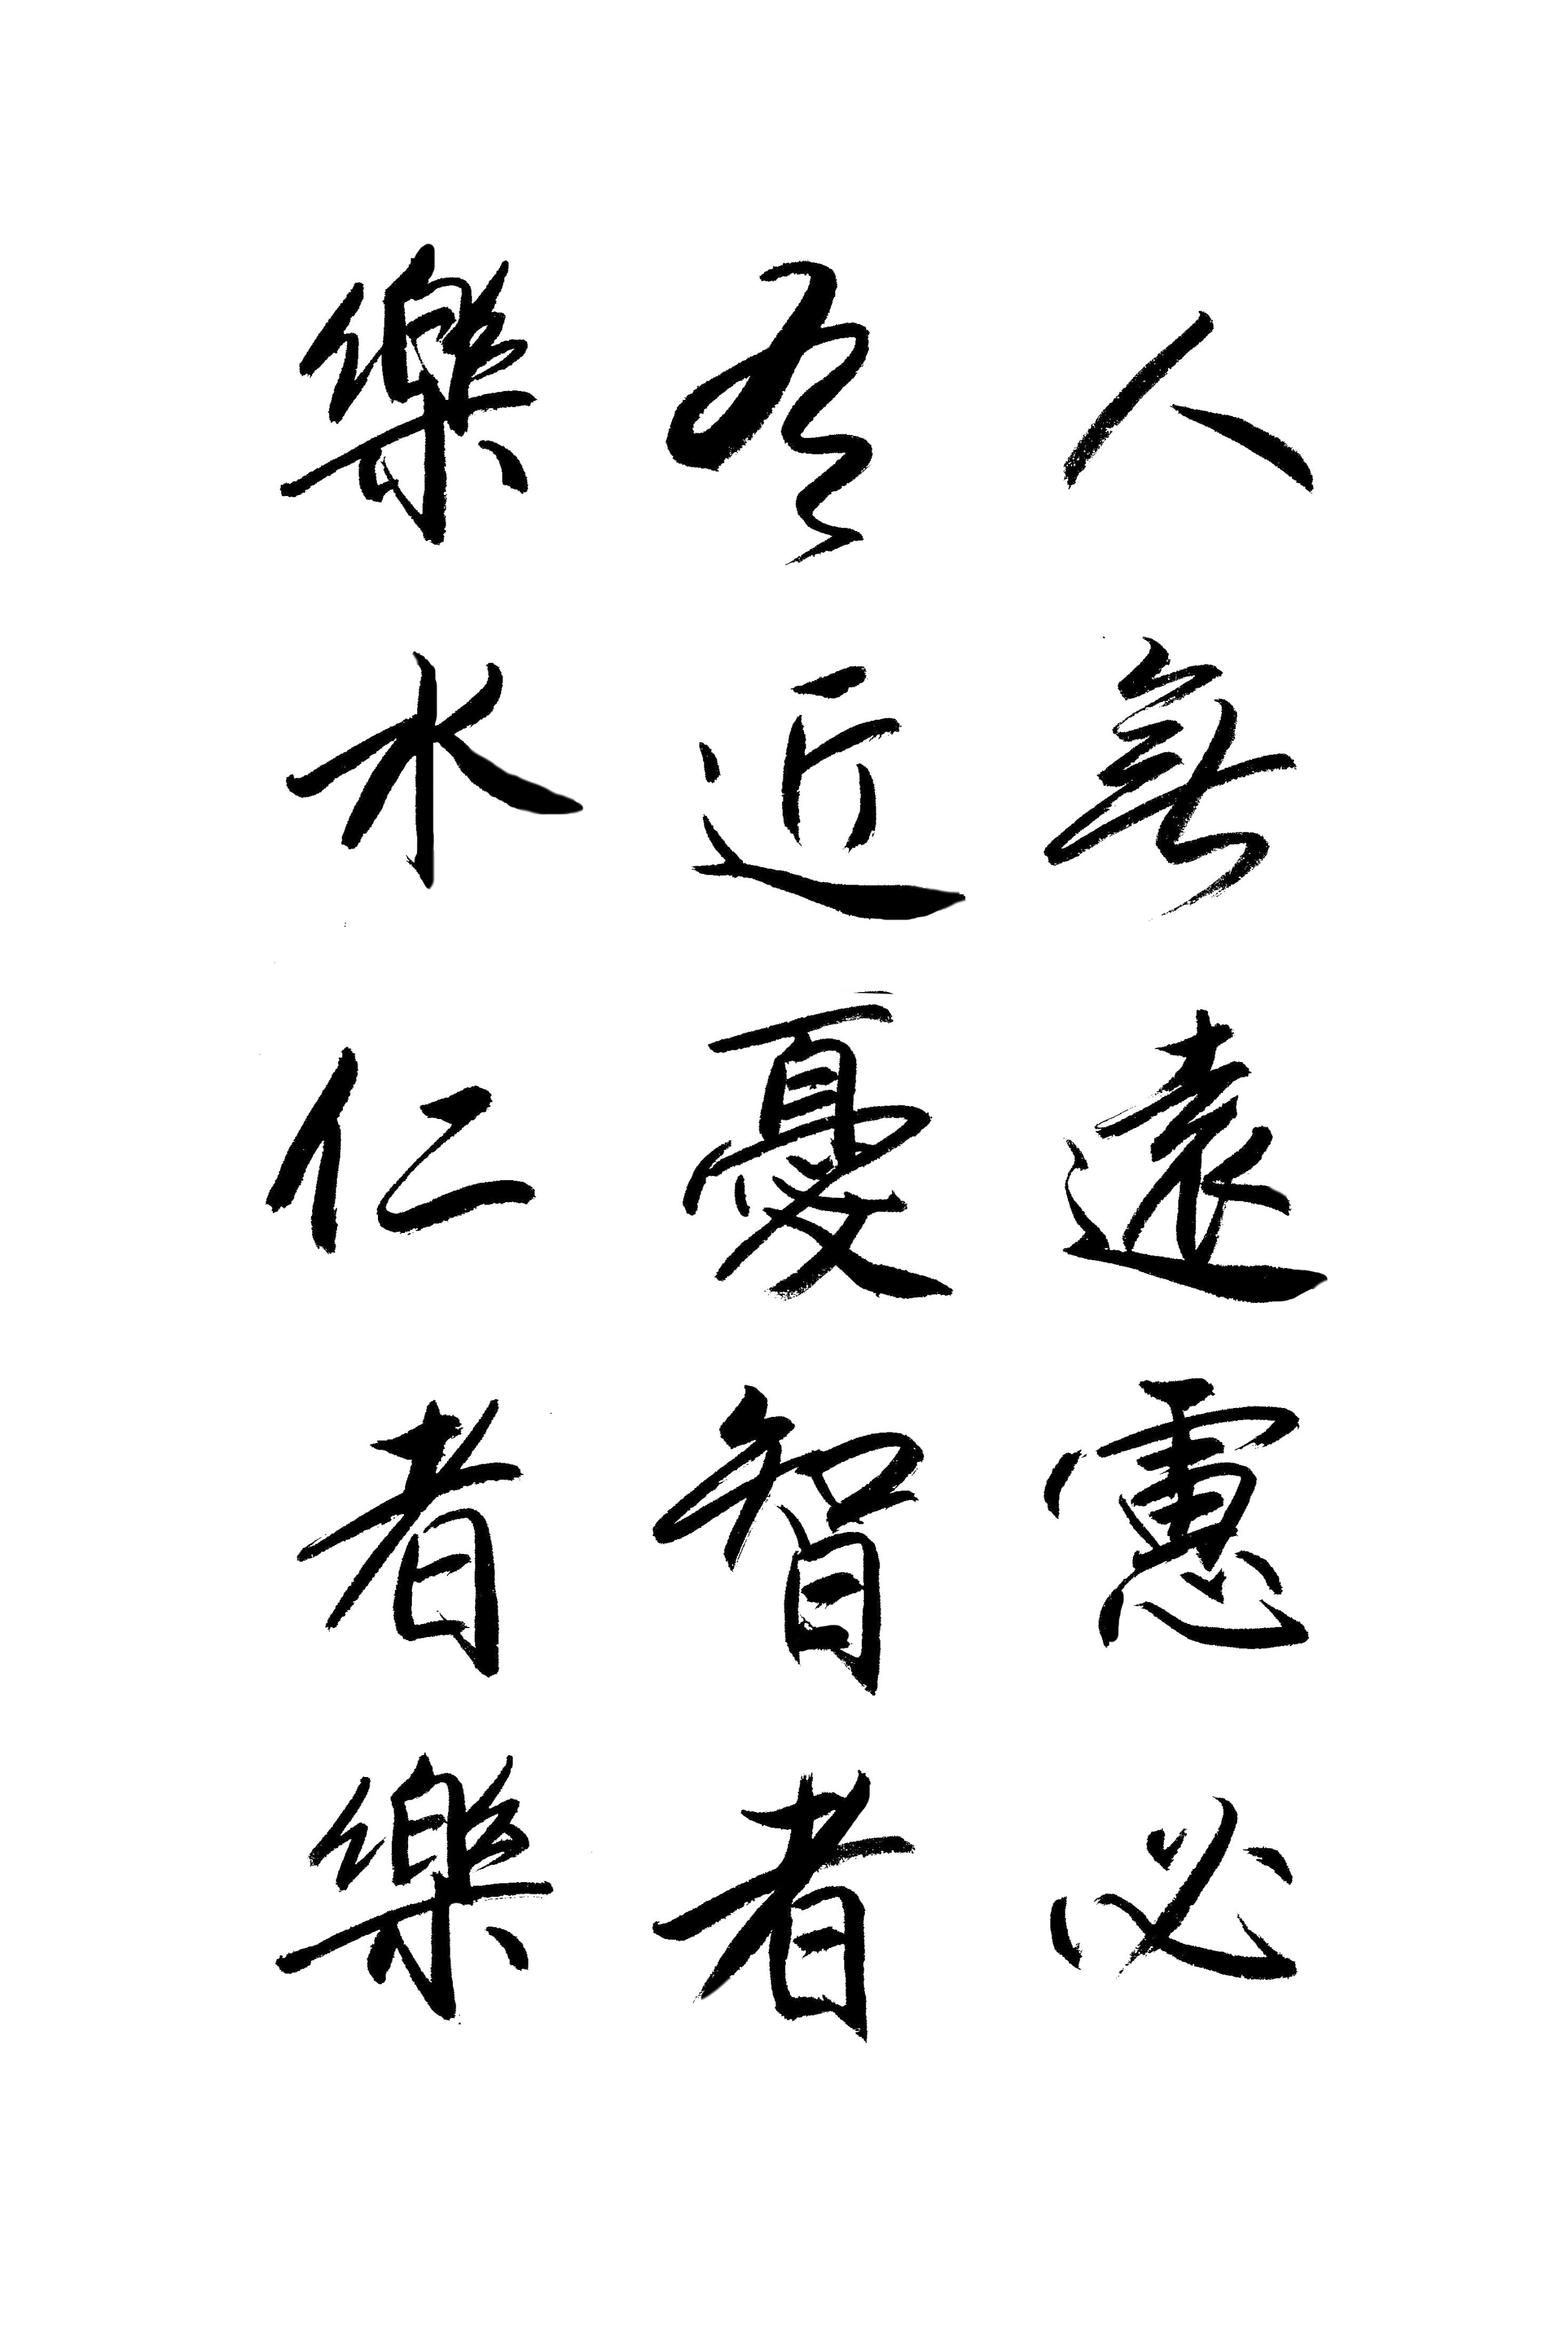 人無遠慮必
有近憂智者
樂水仁者樂